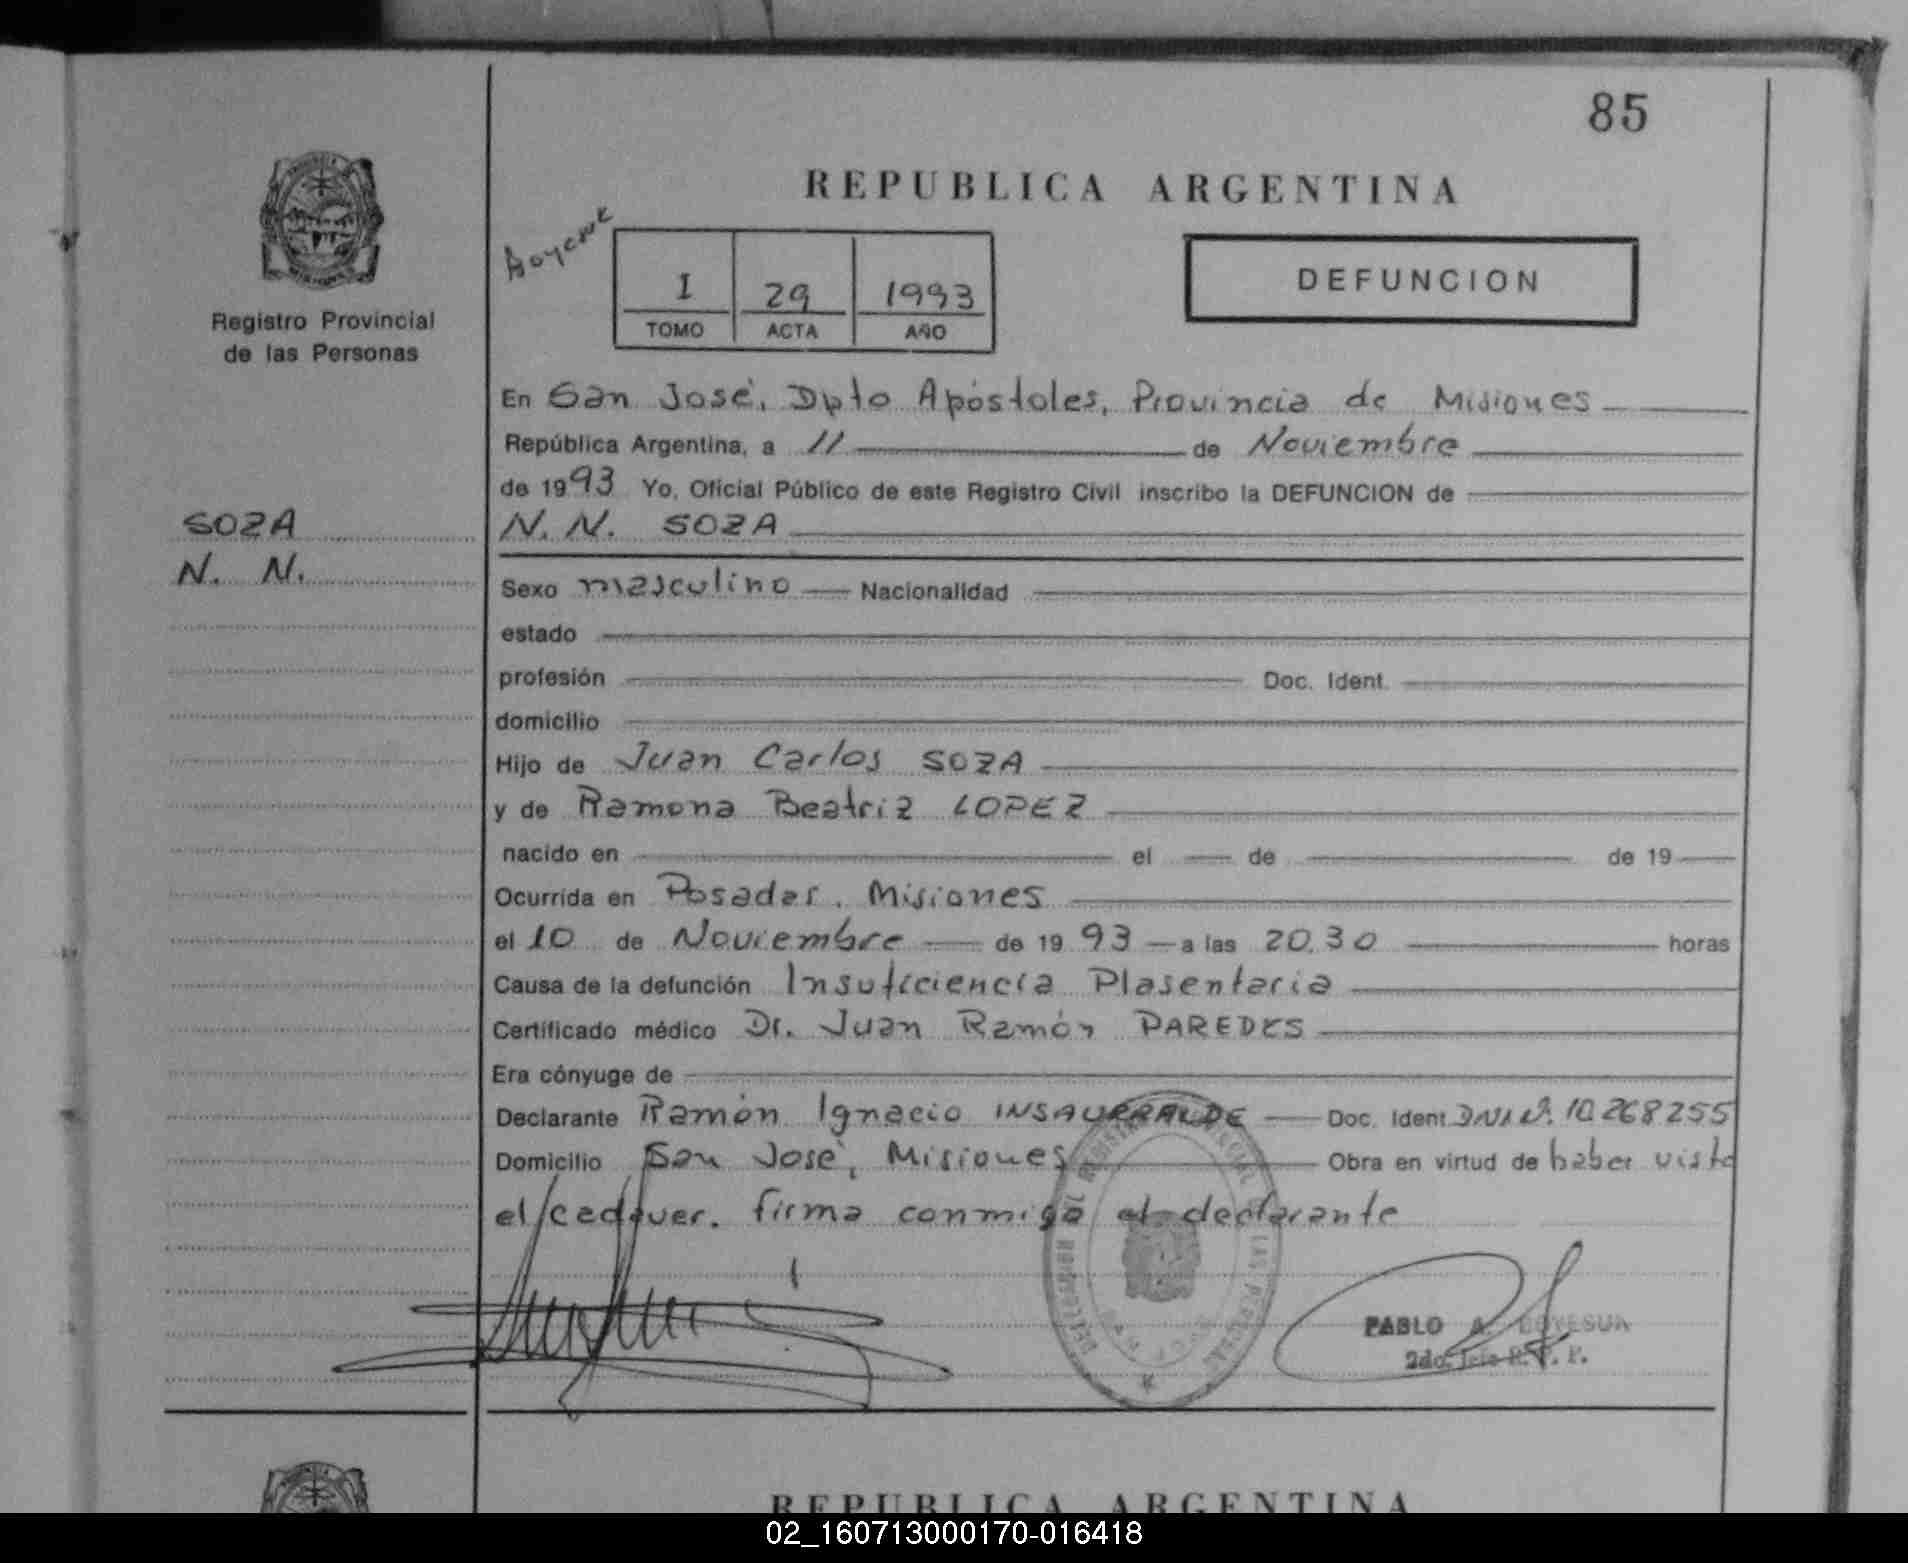 85
REPUBLICA ARGENTINA
Registro Provincial
de las Personas
I 29 1993
TOMO ACTA AÑO
DEFUNCION
En San José, Dpto Apóstoles, Provincia de Misiones
República Argentina, a 11 de Noviembre
de 1993 Yo, Oficial Público de este Registro Civil inscribo la DEFUNCION de
SOZA
N. N.
N. N. SOZA
Sexo masculino Nacionalidad
estado
profesión Doc. Ident.
domicilio
Hijo de Juan Carlos SOZA
y de Ramona Beatriz LOPEZ
nacido en el de de 19
Ocurrida en Posadas, Misiones
el 10 de Noviembre de 1993 a las 20.30 horas
Causa de la defunción Insuficiencia Plasentaria
Certificado médico Dr. Juan Ramón PAREDES
Era cónyuge de
Declarante Ramón Ignacio INSAURRALDE Doc. Ident DNI Nº. 10.268255
Domicilio San José, Misiones Obra en virtud de haber visto
el cadaver. firma conmigo el declarante
PABLO A.
2do. Jefe R. P. P.
REPUBLICA ARGENTINA
02_160713000170-016418